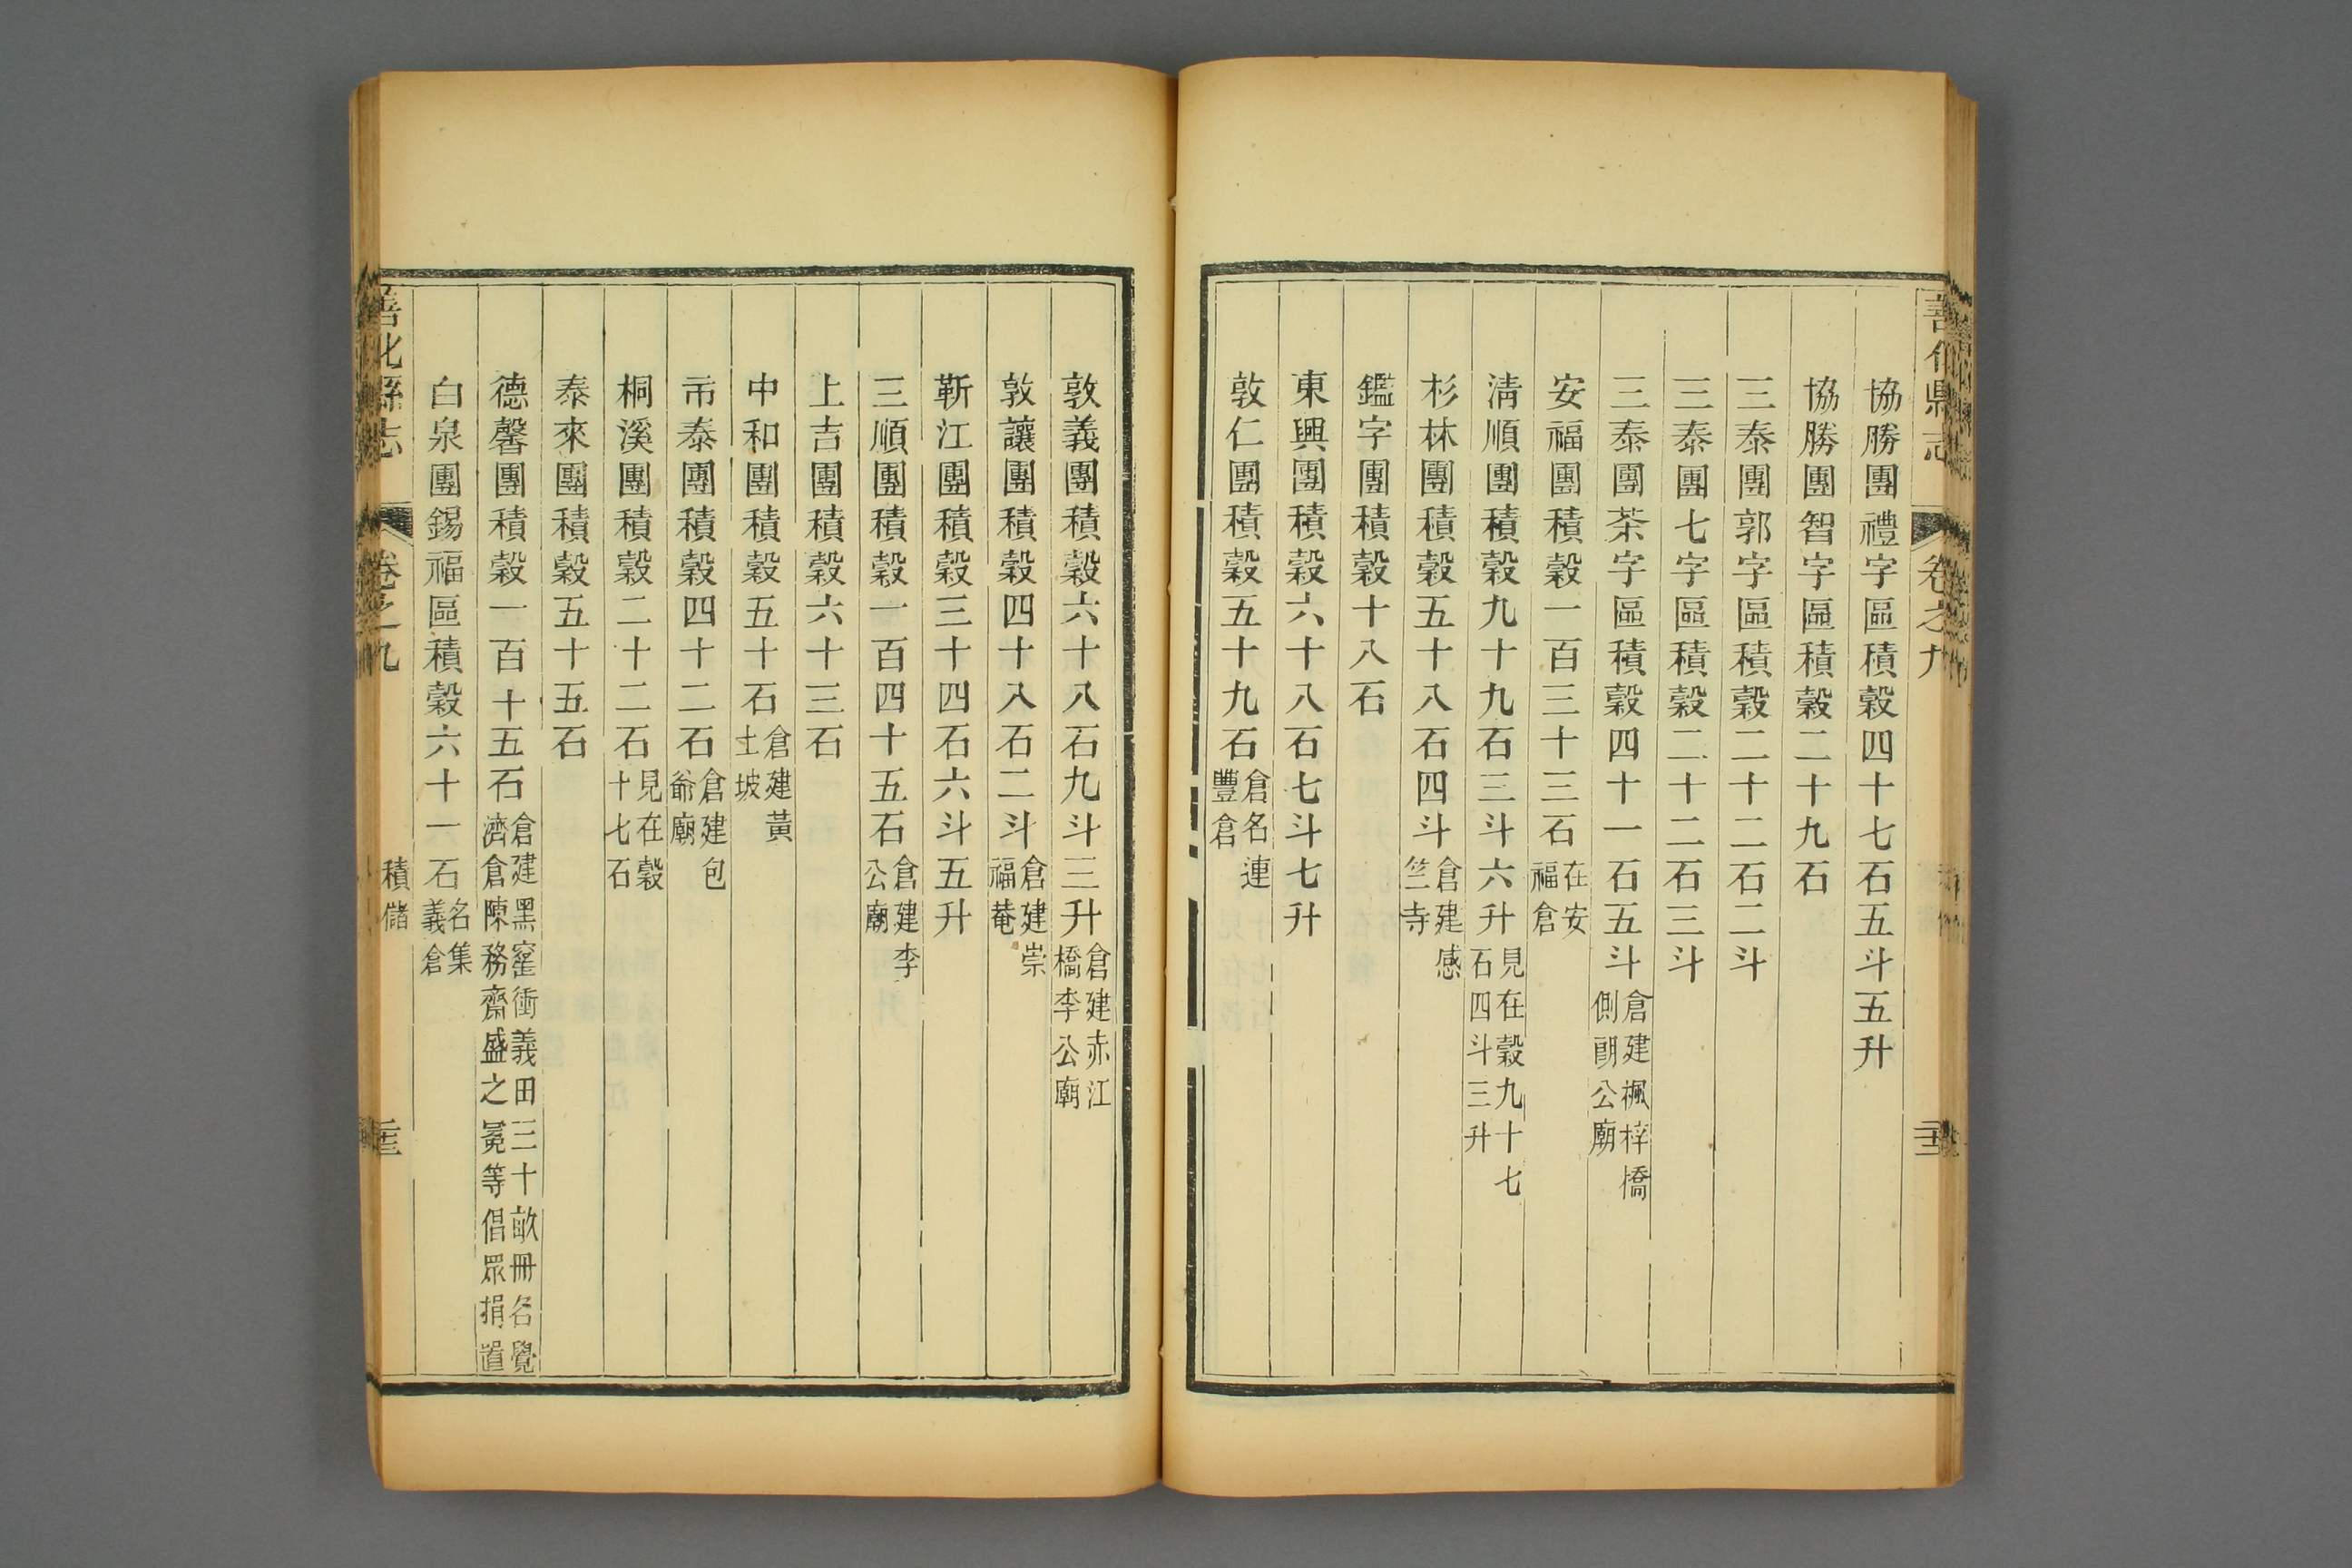 協勝團禮字區積穀四十七石五斗五升
協勝團智字區積穀二十九石
三泰團郭字區積穀二十二石二斗
三泰團七字區積穀二十二石三斗
三泰團茶字區積穀四十一石五斗倉建楓梓橋側朗公廟
安福團積穀一百三十三石在安福倉
清順團積穀九十九石三斗六升見在穀九十七石四斗三升
杉林團積穀五十八石四斗倉建感竺寺
鑑字團積穀十八石
東興團積穀六十八石七斗七升
敦仁團積穀五十九石倉名連豐倉
敦義團積穀六十八石九斗三升倉建赤江橋李公廟
敦讓團積穀四十八石二斗倉建崇福菴
靳江團積穀三十四石六斗五升
三順團積穀一百四十五石倉建李公廟
上吉團積穀六十三石
中和團積穀五十石倉建黃土坡
市泰團積穀四十二石倉建包爺廟
桐溪團積穀二十二石見在穀十七石
泰來團積穀五十五石
德馨團積穀一百十五石倉建黑窰衝義田三十畝冊名覺濟倉陳務齋盛之冕等倡眾捐置
白泉團錫福區積穀六十一石名集義倉
善化縣志
卷之九
積儲